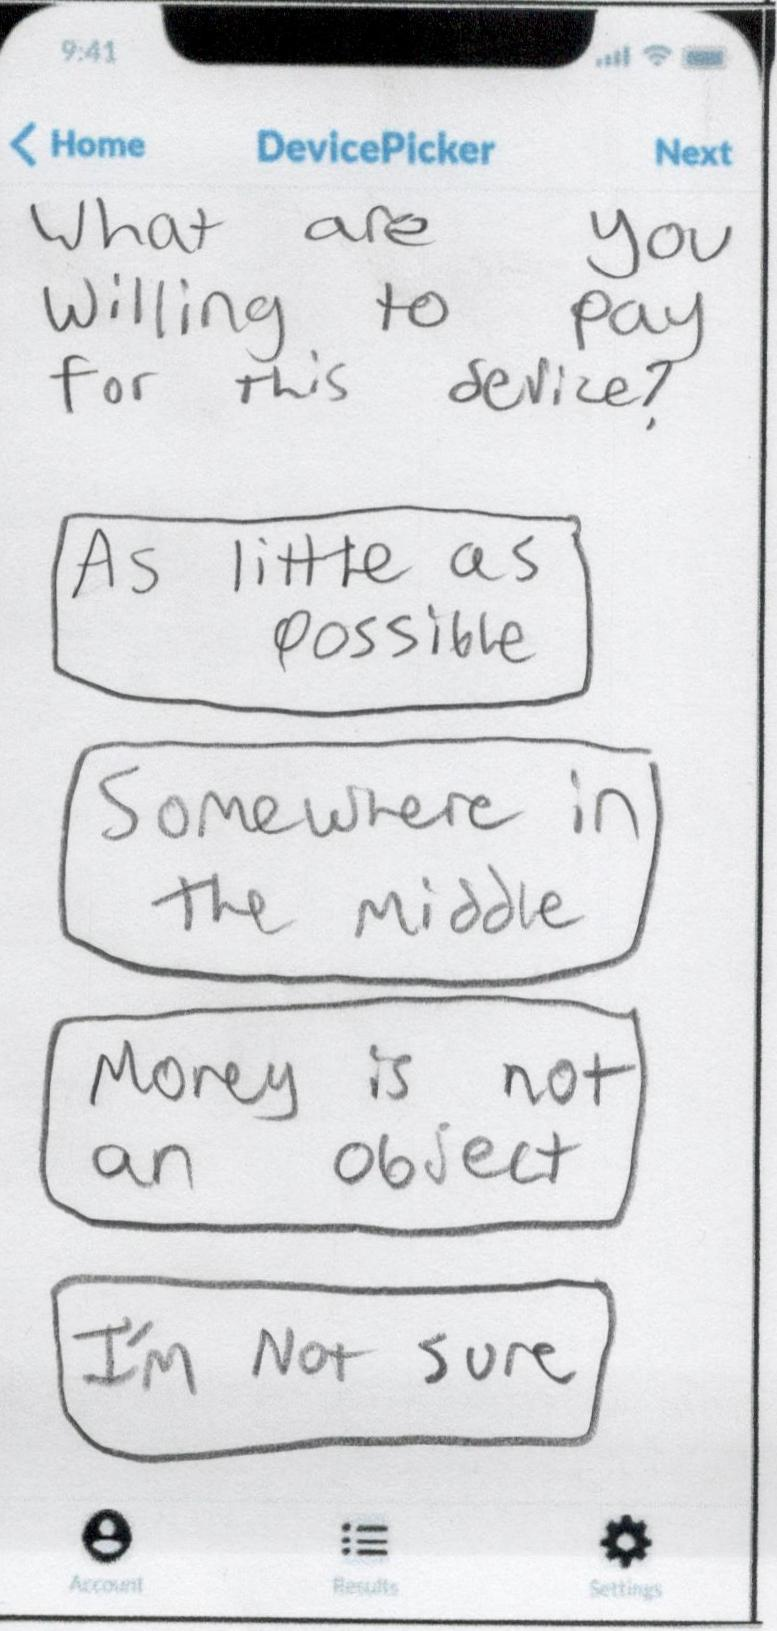 9:41
Home DevicePicker Next
What are you
willing to pay
for this device?
As little as
possible
Somewhere in
the middle
Money is not
an object
I'm Not sure
Account Results Settings